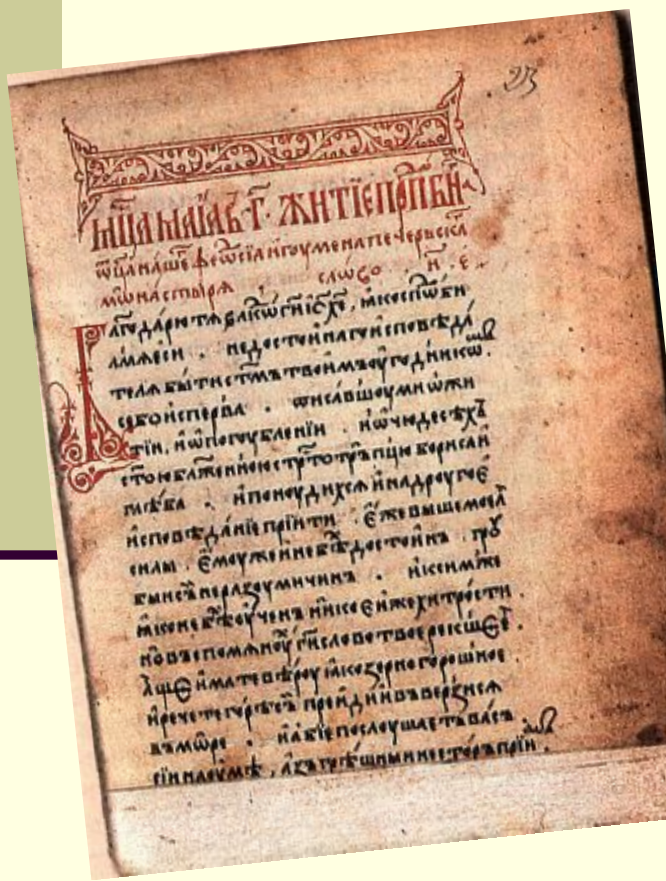 мц҃а маїа въ г҃· житїе прпⷣбн
ѿца нашеⷢ ѳеѡсїа игоумена печерьскаⷢ
мѡнастырѧ · слѡво н҃ · е҃ ·
Благодарю тѧ влⷣко гⷭи іс҃ х҃е, ꙗко сподоби
лъ мѧ еси · недостойнаго исповѣда
телѧ быти ст҃мъ твоимъ оугодникѡⷨ ·
се бо исперва · списавшоу ми ѡ жи
тїи, и ѡ погоублении · и ѡ чюдесѣхъ
ст҃ою блаженною стрⷭтотръпцю бориса и
глѣба · и понудихсѧ и на дроугое
исповѣданїе прїити · еже выше моеѧ
силы · емоу же и не бѣ достоинъ · гроуⷠ
бы и неразоумиченъ ·
ꙗко не бѣ оученъ никоеиже хитрости ·
но въспомѧноухъ гⷭи слово твое рекшее ·
аще имате вѣроу ꙗко зерно горошное ·
и речете горѣ сеи преиди и въверзисѧ
въ мѡре · и абїе послоушаеть васъ ·
сїи на оумѣ, азъ грѣшныи несторъ прїиⷨ ·